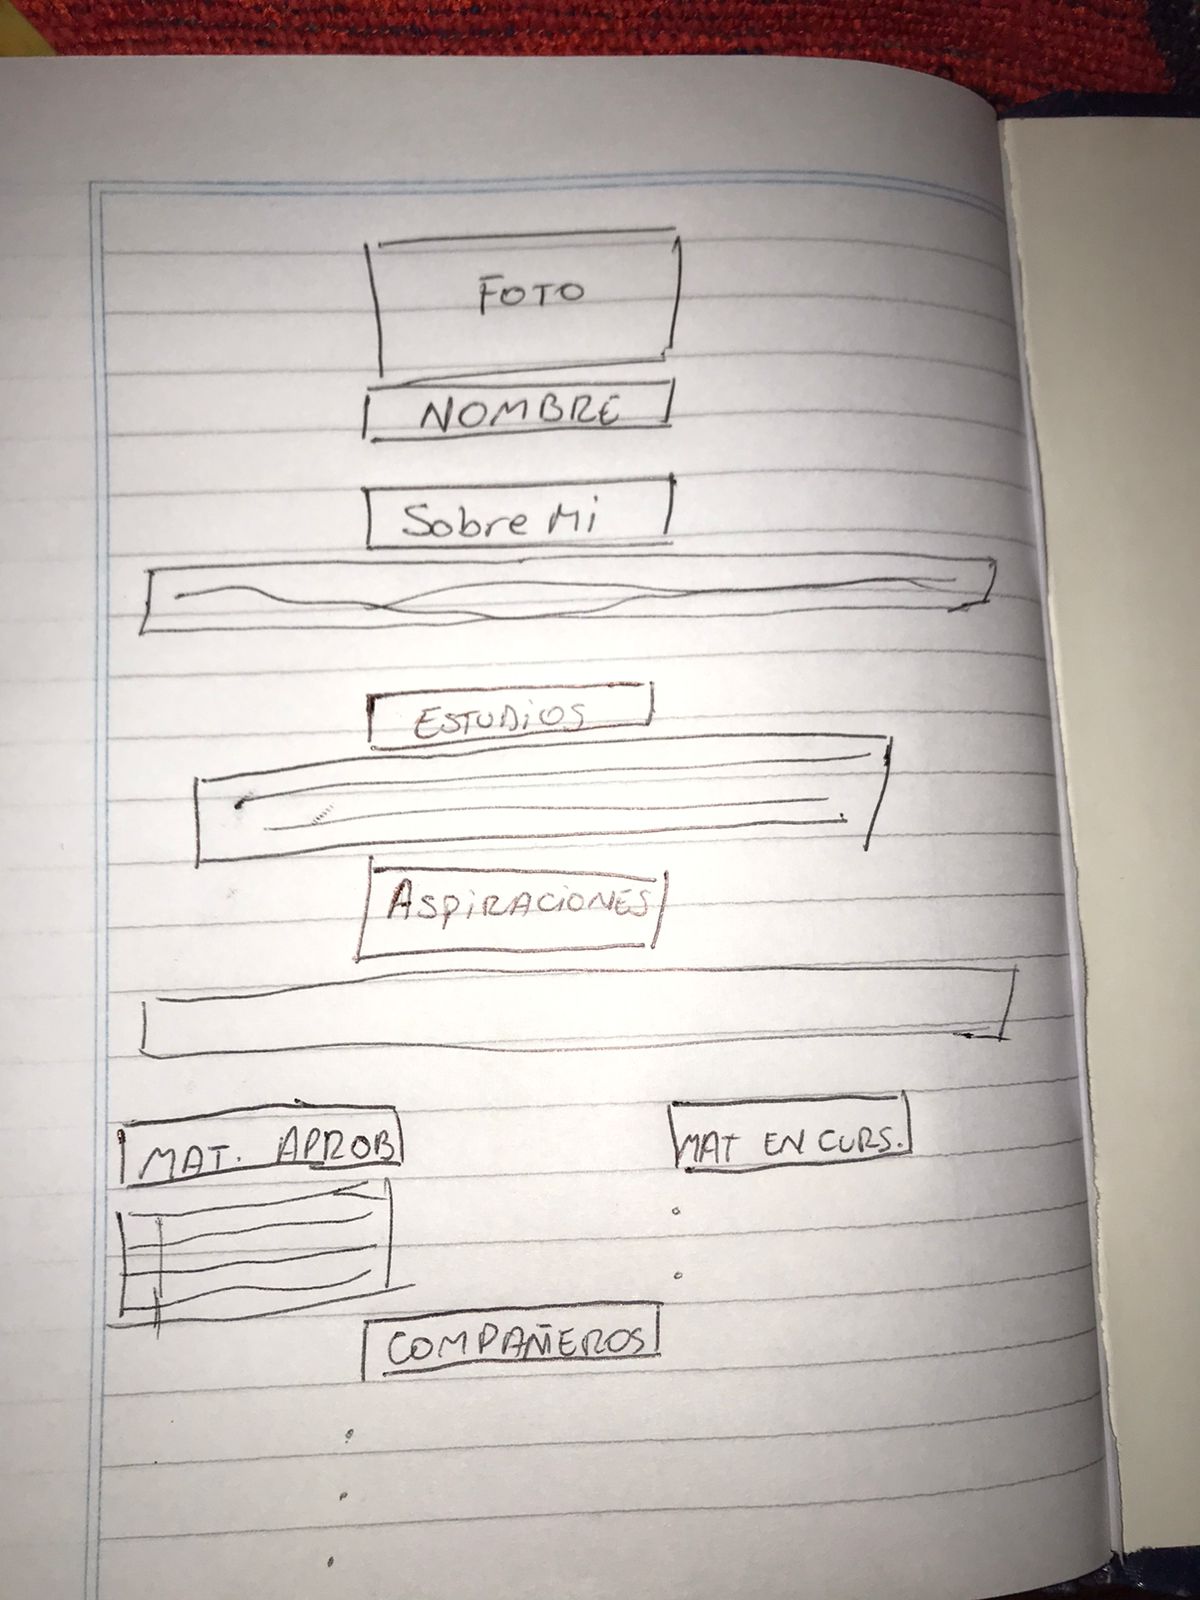 FOTO
NOMBRE
Sobre Mi
ESTUDIOS
ASPIRACIONES
MAT. APROB
MAT EN CURS.
COMPAÑEROS